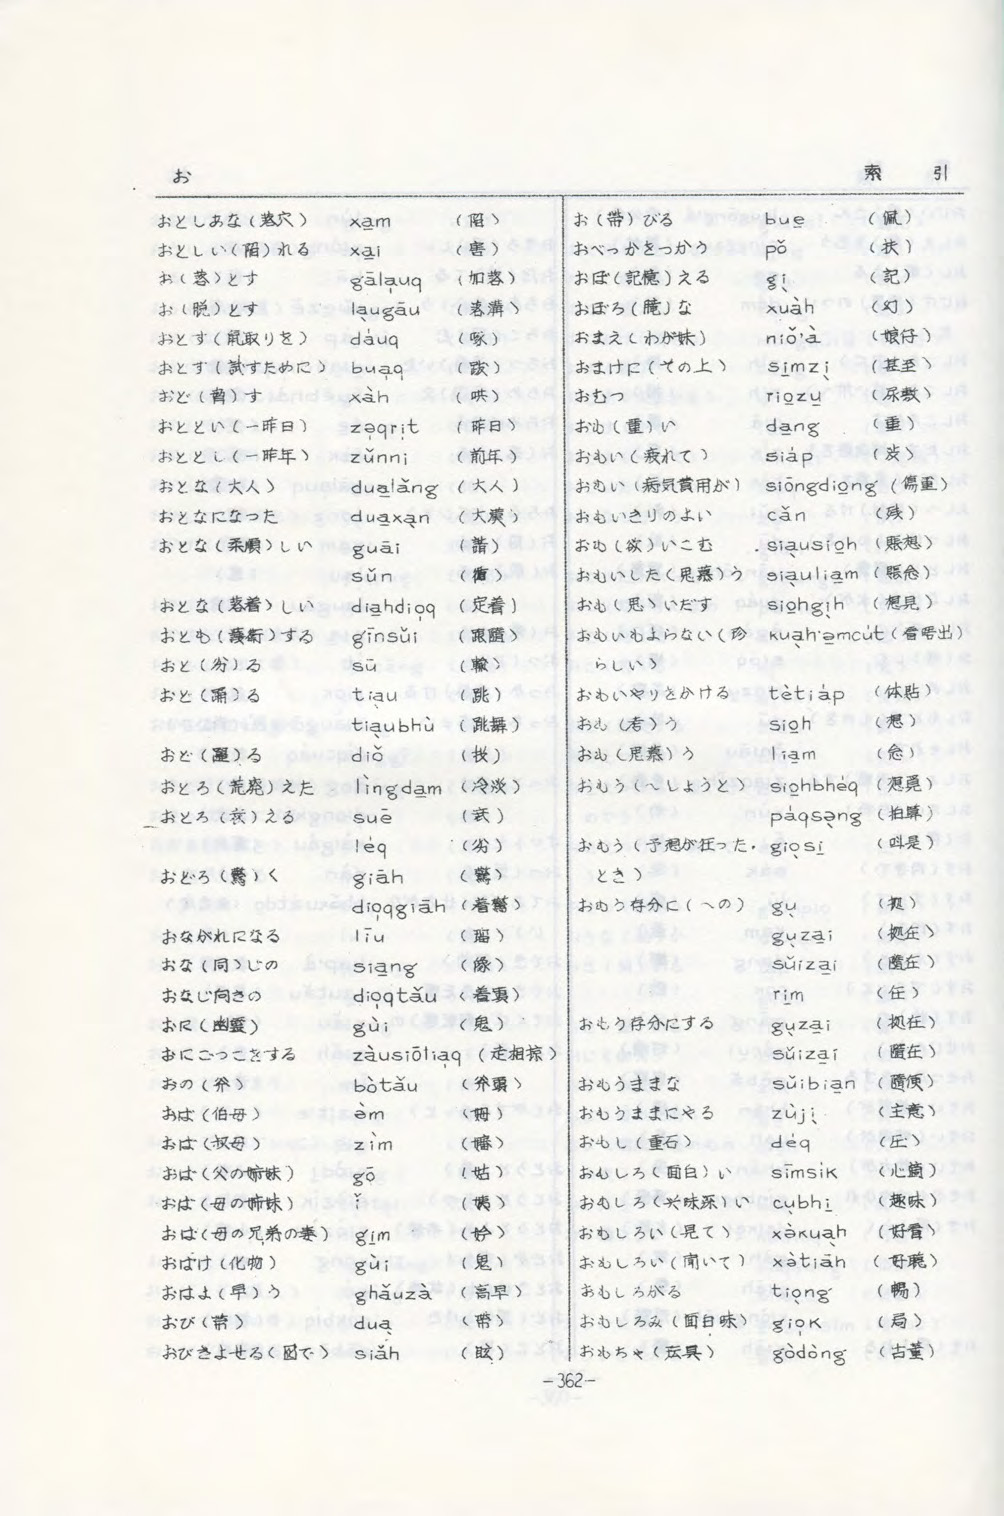 お 索引
おとしあな(落穴) xa̲m (陷)
おとしい(陥)れる xa̲i (害)
お(落)とす gālạuq (加落)
お(脱)とす lạugāu (落溝)
おとす(鼠取りを) dáuq (啄)
おとす(試すために) buạq
おど(脅)す xàh (哄)
おととい(一昨日) zạqrịt (昨日)
おととし(一昨年) zǔnnị (前年)
おとな(大人) dua̲lǎng (大人)
おとなになった dua̲xạn
おとな(柔順)しい guāi
sǔn
おとな(落着)しい dia̲hdiọq (定着)
おとも(護衛)する gīnsǔi (跟隨)
おと(劣)る sū (輸)
おど(踊)る tiạu (跳)
tiạubhù (跳舞)
おど(躍)る diǒ
おとろ(荒廃)えた lìngda̲m (冷淡)
おとろ(衰)える suē (衰)
léq (劣)
おどろ(驚)く giāh (驚)
diọqgiāh (着驚)
おながれになる līu (溜)
おな(同)じの sia̲ng (像)
おなじ向きの diọqtǎu (着頭)
おに(幽靈) gùi (鬼)
おにごっこをする zàusiōliaq (走相掠)
おの(斧) bòtǎu (斧頭)
おば(伯母) èm (姆)
おば(叔母) zìm (嬸)
おば(父の姉妹) gō (姑)
おば(母の姉妹) ǐ (姨)
おば(母の兄弟の妻) gịm (妗)
おばけ(化物) gùi (鬼)
おはよ(早)う ghǎuzà
おび(帯) duạ (帶)
おびきよせる(囮で) siǎh
お(帯)びる bue̲ (佩)
おべっかをつかう pǒ (扶)
おぼ(記憶)える gị (記)
おぼろ(朧)な xuàh (幻)
おまえ(わが妹) niǒ·à (娘仔)
おまけに(その上) si̲mzị (甚至)
おむつ rio̲zu̲
おも(重)い da̲ng (重)
おもい(疲れて) siáp (渋)
おもい(病気費用が) siōngdio̲ng (傷重)
おもいきりのよい cǎn (残)
おも(欲)いこむ siạusio̲h (賬想)
おもいした(思慕)う siạulia̲m (賬念)
おも(思)いだす sio̲hgịh (想見)
おもいもよらない(珍 kuạh·a̲mcút (看唔出)
らしい)
おもいやりをかける tètiáp (体貼)
おも(君)う sio̲h (想)
おも(思慕)う lia̲m (念)
おもう(〜しようと) sio̲hbhéq (想覓)
páqsạng (拍算)
おもう(予想が狂った giọsi̲ (叫是)
とき)
おもう存分に(への) gụ (拠)
gụza̲i (拠在)
sǔiza̲i (隨在)
ri̲m (任)
おもう存分にする gụza̲i (拠在)
sǔiza̲i (隨在)
おもうままな sǔibia̲n (隨便)
おもうままにやる zùjị (主意)
おもし(重石) déq (圧)
おもしろ(面白)い sīmsik
おもしろ(興味深)い cụbhi̲ (趣味)
おもしろい(見て) xàkuạh (好看)
おもしろい(聞いて) xàtiāh (好聴)
おもしろがる tiọng (暢)
おもしろみ(面白味) giọk (局)
おもちゃ(玩具) gòdòng (古董)
-362-